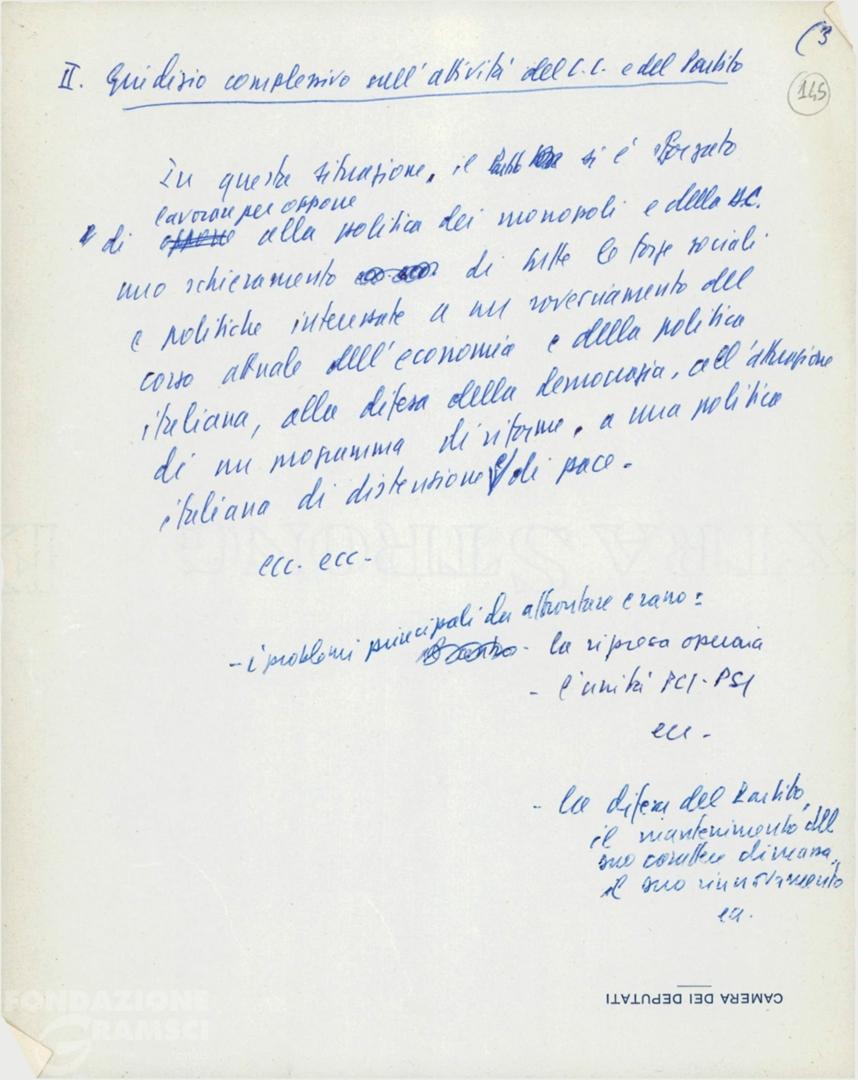 (3
145
II. Giudizio complessivo sull'attività del C.C. e del Partito
In questa situazione, il Partito si è sforzato
lavorare per opporre
di opporre alla politica dei monopoli e della D.C.
uno schieramento di tutte le forze sociali
e politiche interessate a un rovesciamento del
corso attuale dell'economia e della politica
italiana, alla difesa della democrazia, all'attuazione
di un programma di riforme, a una politica
italiana di distensione e di pace.
ecc. ecc.
- i problemi principali da affrontare erano:
- la ripresa operaia
- l'unità PCI-PSI
ecc.
- la difesa del Partito,
il mantenimento del
suo carattere di massa,
il suo rinnovamento
ecc.
CAMERA DEI DEPUTATI
EXTRA STRONG
FONDAZIONE
GRAMSCI